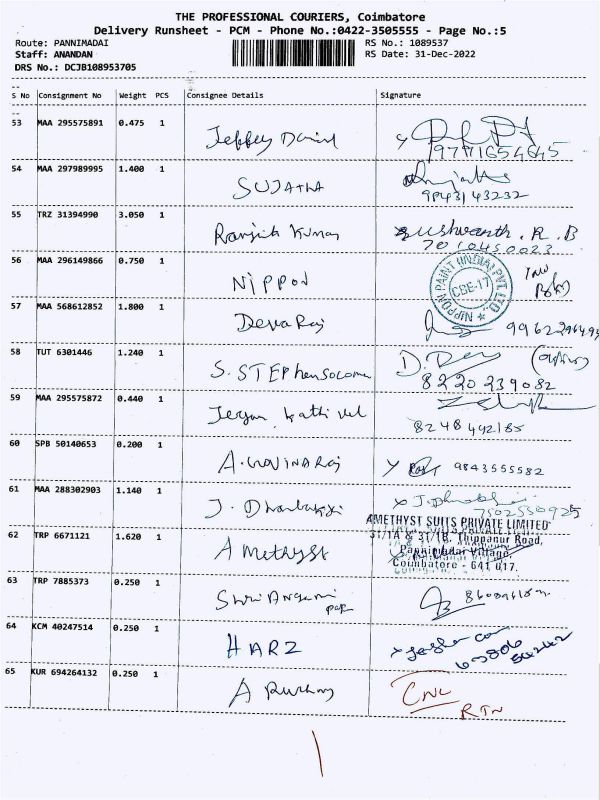 THE PROFESSIONAL COURIERS, Coimbatore
Delivery Runsheet - PCM - Phone No.:0422-3505555 - Page No.:5
Route: PANNIMADAI
RS No.: 1089537
Staff: ANANDAN
RS Date: 31-Dec-2022
DRS No.: DCJB108953705
S No Consignment No Weight PCS Consignee Details Signature
53 MAA 295575891 0.475 1 Jeffrey Daniel
9771654645
54 MAA 297989995 1.400 1 SUJATHA
9843143232
55 TRZ 31394990 3.050 1 Ranjith Kumar
R.B
7010450023
56 MAA 296149866 0.750 1 NIPPON
NIPPON PAINT (INDIA) PVT. LTD.
CBE-17
57 MAA 568612852 1.800 1 DevaRaj
58 TUT 6301446 1.240 1 S. STEPhen
D. Dev
8220239082
59 MAA 295575872 0.440 1
8248442185
60 SPB 50140653 0.200 1 A. GOVINDARaj
9843555582
61 MAA 288302903 1.140 1 J.
7502530925
62 TRP 6671121 1.620 1 Amethyst
AMETHYST SUITS PRIVATE LIMITED
31/1A & 31/1B, Thippanur Road,
Pannimadai Village,
Coimbatore - 641 017.
63 TRP 7885373 0.250 1 Shri
64 KCM 40247514 0.250 1 HARZ
65 KUR 694264132 0.250 1 A
CNL
RTN